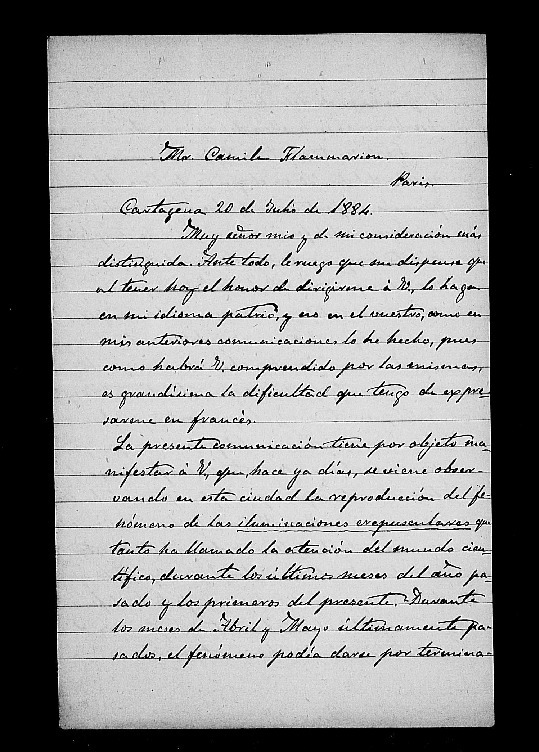 Mr. Camile Flammarion.
Paris.
Cartagena 20 de Julio de 1884.
Muy señor mio y de mi consideración más
distinguida. Ante todo, le ruego que me dispense que
al tener hoy el honor de dirigirme à V., lo haga
en mi idioma patrio, y no en el vuestro, como en
mis anteriores comunicaciones lo he hecho, pues
como habrá V. comprendido por las mismas,
es grandísima la dificultad que tengo de expre-
sarme en francés.
La presente comunicación tiene por objeto ma-
nifestar à V. que, hace ya días, se viene obser-
vando en esta ciudad la reproducción del fe-
nómeno de las iluminaciones crepusculares que
tanto ha llamado la atención del mundo cien-
tífico, durante los últimos meses del año pa-
sado y los primeros del presente. Durante
los meses de Abril y Mayo últimamente pa-
sados, el fenómeno podía darse por termina-